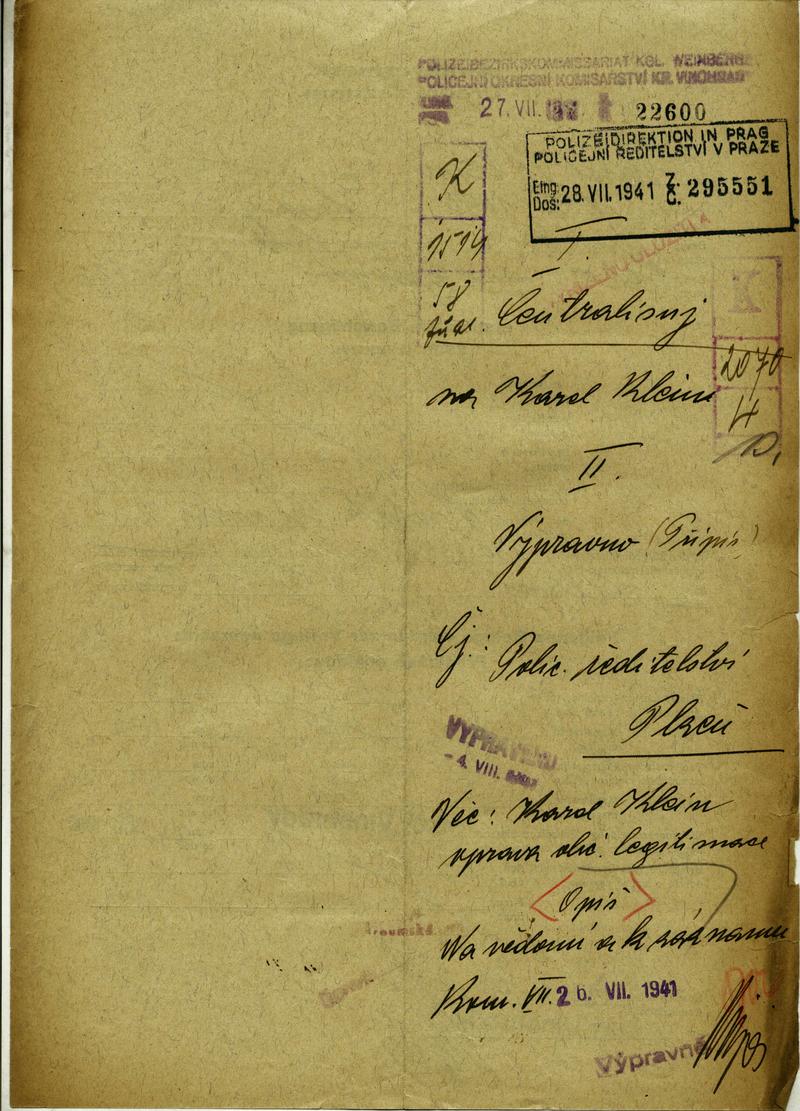 POLIZEIBEZIRKSKOMMISSARIAT KGL. WEINBERGE
POLICEJNÍ OKRESNÍ KOMISAŘSTVÍ KR. VINOHRADY
27. VII. 22600
POLIZEIDIREKTION IN PRAG
POLICEJNÍ ŘEDITELSTVÍ V PRAZE
Eing.
Doš: 28. VII. 1941 Z. Č. 295551
K
1514
58
I.
K
2070
4
Centralisuj
na Karel Klein
II.
Výpravno (Přípis)
Čj.: Polic. ředitelství
Plzeň
VYPRAVENO
- 4. VIII.
Věc: Karel Klein
oprava obč. legitimace
Opis
Na vědomí a k záznamu
Kom. VII. 26. VII. 1941
Výpravně